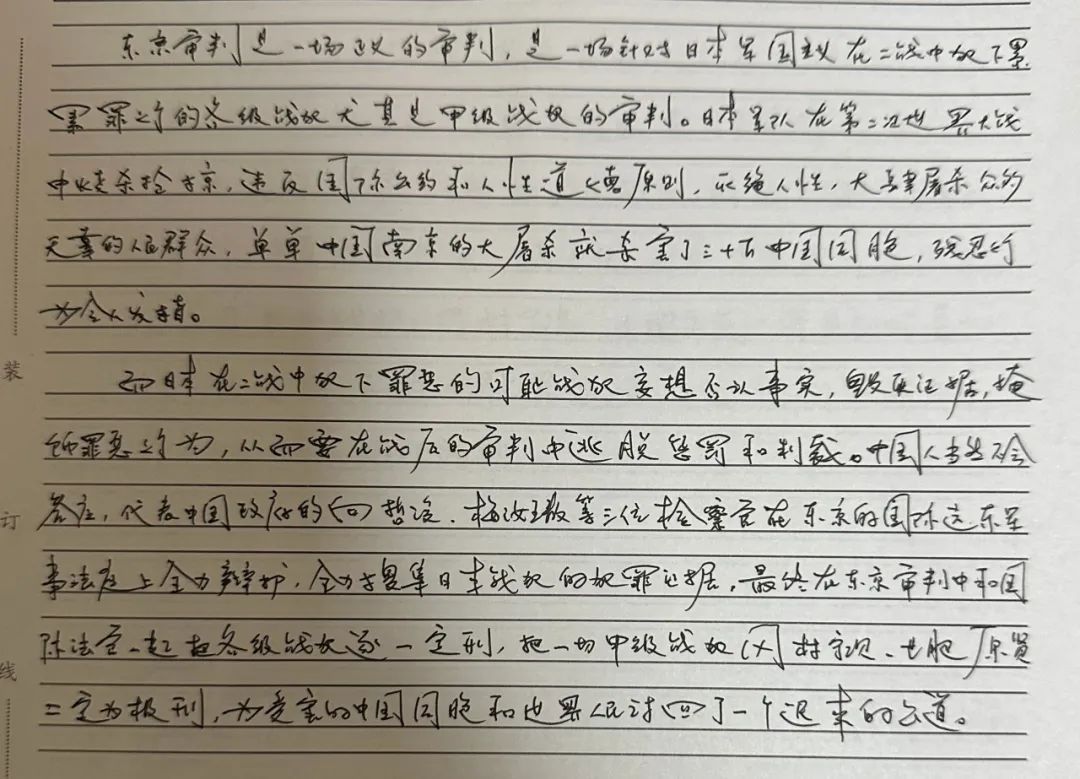 东京审判是一场正义的审判，是一场针对日本军国主义在二战中犯下累
累罪行的各级战犯尤其是甲级战犯的审判。日本军队在第二次世界大战
中烧杀抢掠，违反国际公约和人性道德原则，灭绝人性，大肆屠杀众的
无辜的人民群众，单单中国南京的大屠杀就杀害了三十万中国同胞，残忍行
为令人发指。
而日本在二战中犯下罪恶的可耻战犯妄想否认事实，毁灭证据，掩
饰罪恶之行为，从而要在战后的审判中逃脱惩罚和制裁。中国人当然不会
答应，代表中国政府的向哲浚、梅汝璈等三位检察官在东京的国际远东军
事法庭上全力辩护，全力搜集日本战犯的犯罪证据，最终在东京审判中和国
际法官一起把各级战犯逐一定刑，把一切甲级战犯冈村宁次、土肥原贤
二定为极刑，为受害的中国同胞和世界人民讨回了一个迟来的公道。
装
订
线